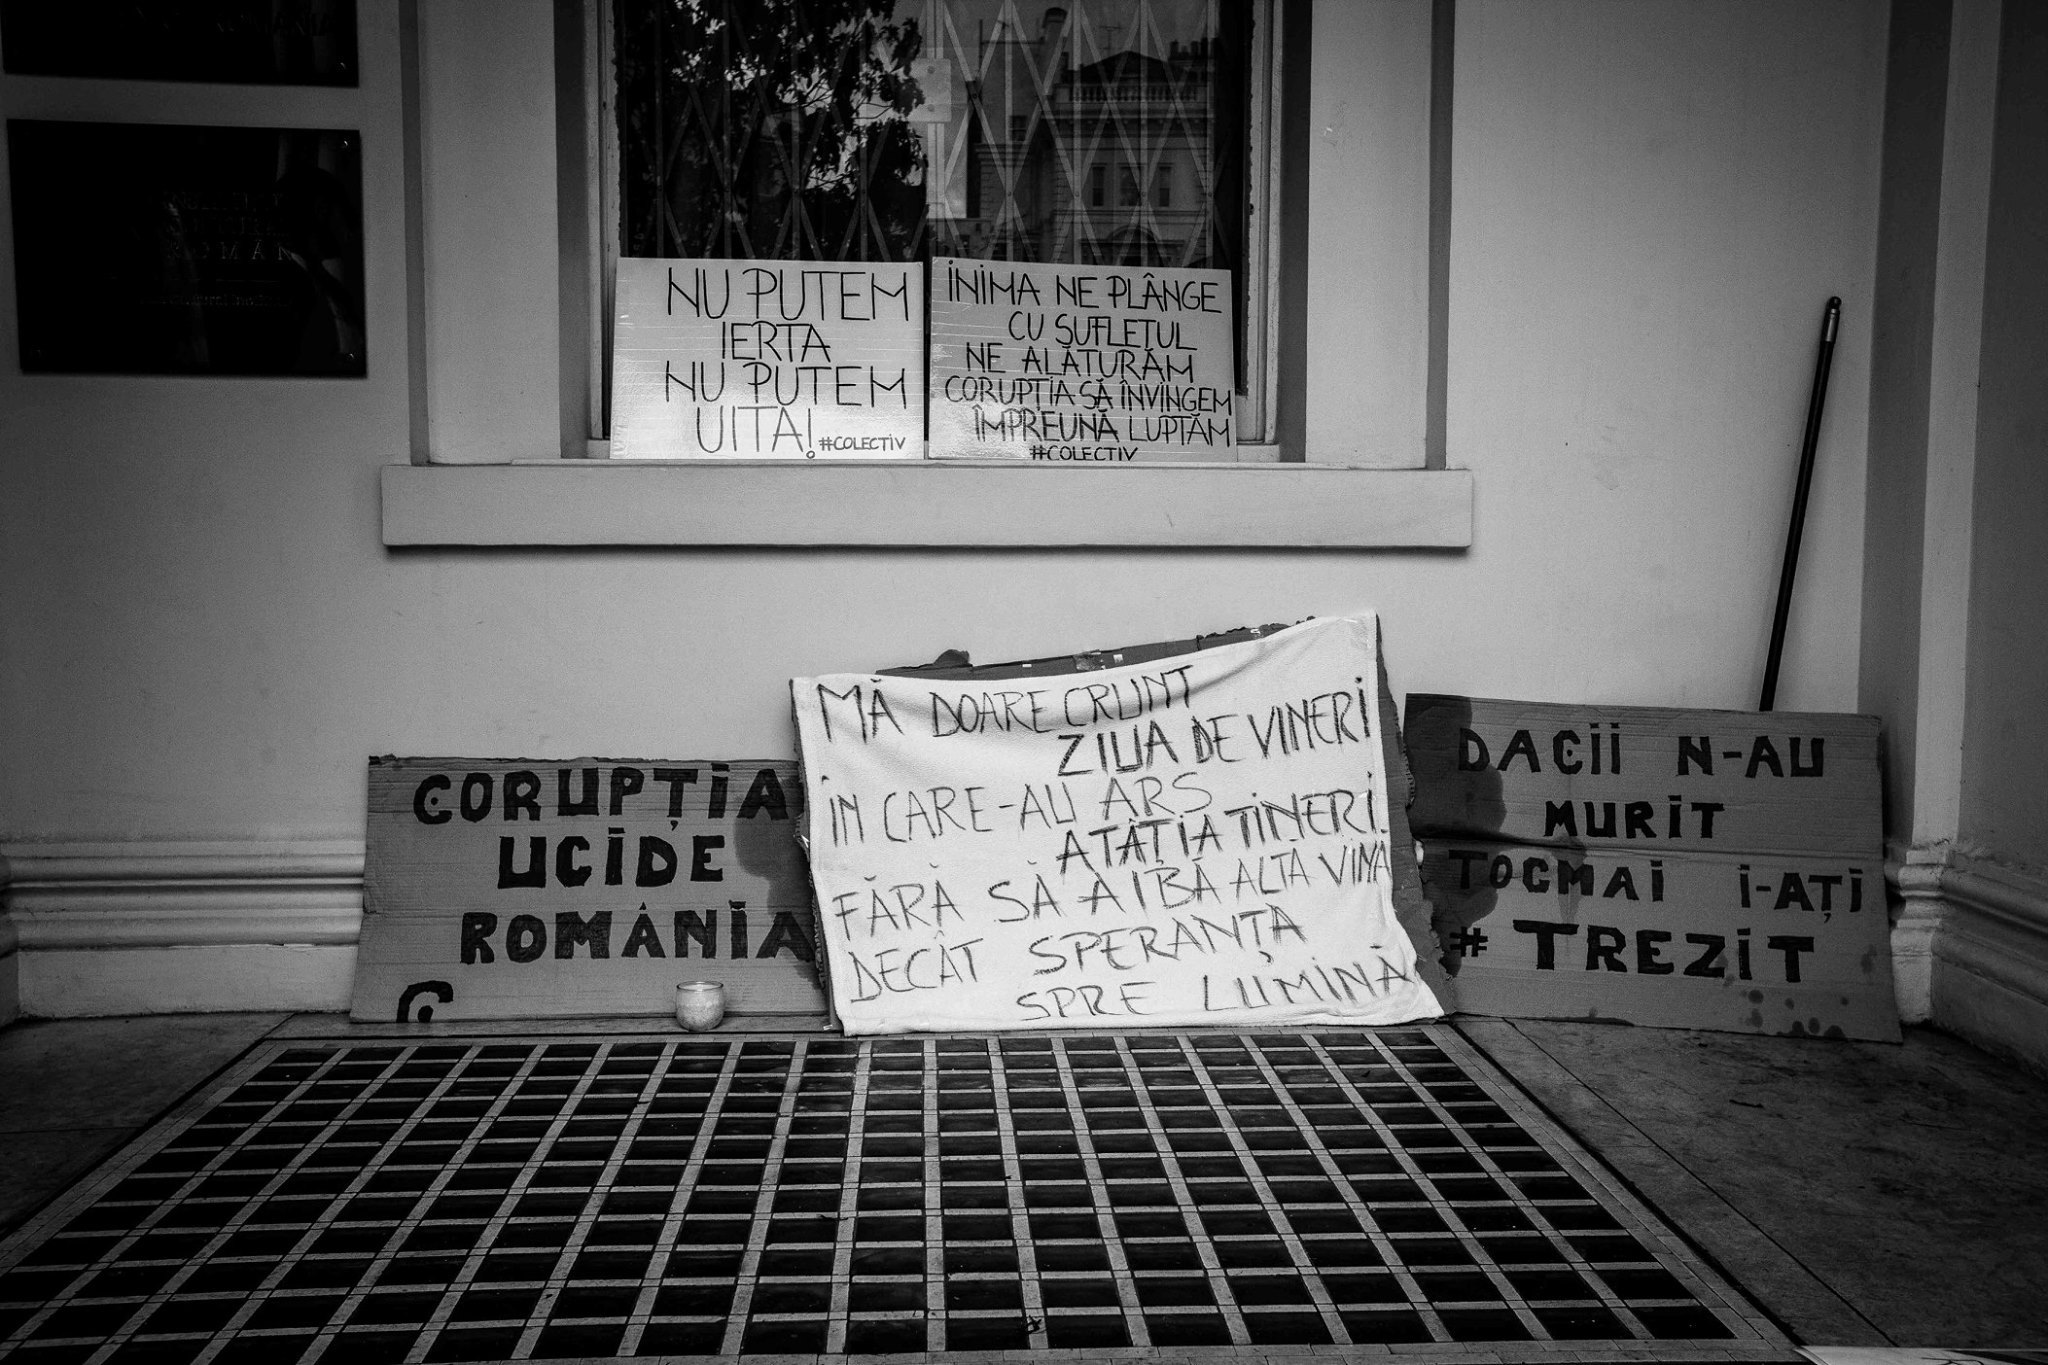 NU PUTEM
IERTA
NU PUTEM
UITA! #COLECTIV
INIMA NE PLÂNGE
CU SUFLEȚUL
NE ALĂTURĂM
CORUPȚIA SĂ ÎNVINGEM
ÎMPREUNĂ LUPTĂM
#COLECTIV
CORUPȚIA
UCIDE
ROMÂNIA
C
MĂ DOARE CRUNT
ZIUA DE VINERI
ÎN CARE-AU ARS
ATÂȚIA TINERI.
FĂRĂ SĂ AIBĂ ALTĂ VINĂ
DECÂT SPERANȚA
SPRE LUMINĂ
DACII N-AU
MURIT
TOCMAI I-AȚI
# TREZIT